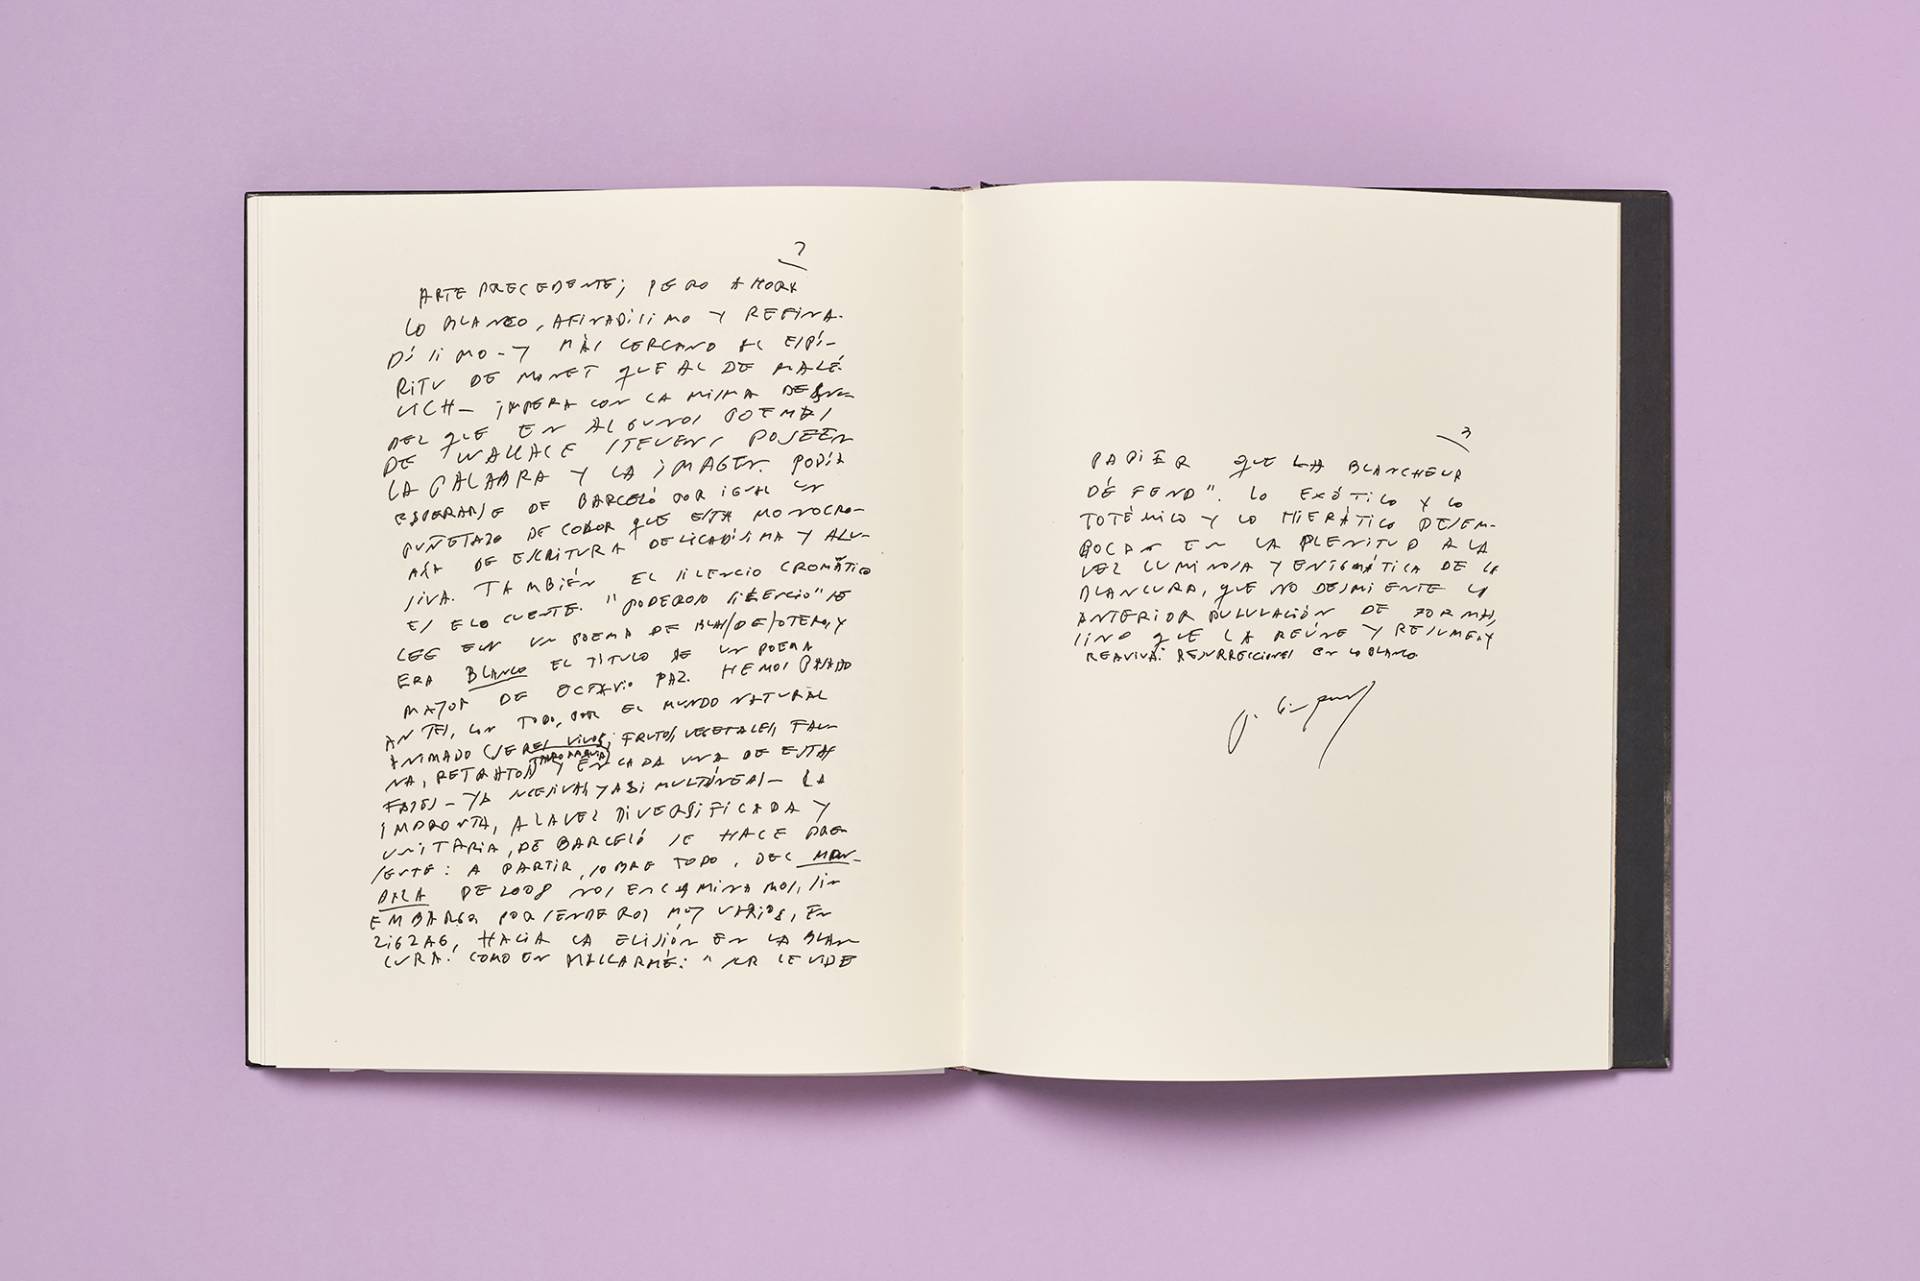 2
ARTE PRECEDENTE; PERO AHORA
LO BLANCO, AFINADÍSIMO Y REFINA-
DÍSIMO - Y MÁS CERCANO AL ESPÍ-
RITU DE MONET QUE AL DE MALÉ-
VICH - IMPERA CON LA MISMA DESNU-
DEZ QUE EN ALGUNOS POEMAS
DE WALLACE STEVENS POSEEN
LA PALABRA Y LA IMAGEN. PODÍA
ESPERARSE DE BARCELÓ POR IGUAL UN
PUÑETAZO DE COLOR QUE ESTA MONOCRO-
MÍA DE ESCRITURA DELICADÍSIMA Y ALU-
SIVA. TAMBIÉN EL SILENCIO CROMÁTICO
ES ELOCUENTE. "PODEROSO SILENCIO" SE
LEE EN UN POEMA DE BLAS DE OTERO, Y
ERA BLANCO EL TÍTULO DE UN POEMA
MAYOR DE OCTAVIO PAZ. HEMOS PASADO
ANTES, CON TODO, POR EL MUNDO NATURAL
ANIMADO (SERES VIVOS, FRUTOS, VEGETALES, FAU-
NA, RETRATOS, TAUROMAQUIA) Y EN CADA UNA DE ESTAS
FASES - YA SUCESIVAS, YA SIMULTÁNEAS - LA
IMPRONTA, A LA VEZ DIVERSIFICADA Y
UNITARIA, DE BARCELÓ SE HACE PRE-
SENTE: A PARTIR, SOBRE TODO, DEL MAN-
DALA DE 2008 NOS ENCAMINAMOS, SIN
EMBARGO, POR SENDEROS MUY VARIOS, EN
ZIGZAG, HACIA LA ELISIÓN EN LA BLAN
CURA. COMO EN MALLARMÉ: "SUR LE VIDE
3
PAPIER QUE LA BLANCHEUR
DÉFEND". LO EXÓTICO Y LO
TOTÉMICO Y LO HIERÁTICO DESEM-
BOCAN EN LA PLENITUD A LA
VEZ LUMINOSA Y ENIGMÁTICA DE LA
BLANCURA, QUE NO DESMIENTE LA
ANTERIOR PULULACIÓN DE FORMAS,
SINO QUE LA REÚNE Y RESUME, Y
REAVIVA. RESURRECCIONES EN LO BLANCO